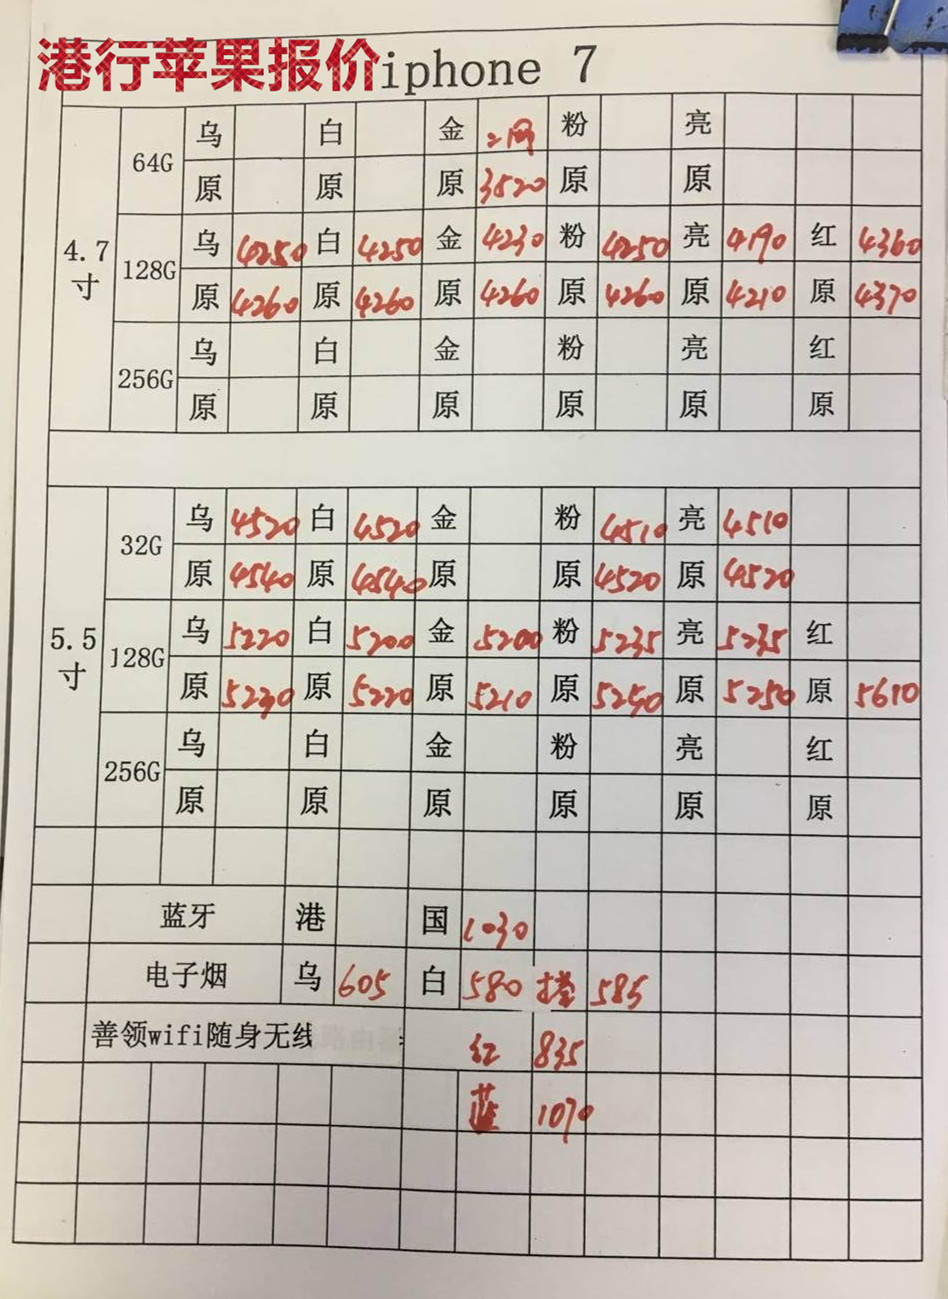 港行苹果报价 iphone 7
4.7寸
64G
乌 白 金 二网 粉 亮
原 原 原 3520 原 原
128G
乌 4250 白 4250 金 4230 粉 4250 亮 4190 红 4360
原 4260 原 4260 原 4260 原 4260 原 4210 原 4370
256G
乌 白 金 粉 亮 红
原 原 原 原 原 原
5.5寸
32G
乌 4520 白 4520 金 粉 4510 亮 4510
原 4540 原 4540 原 原 4520 原 4520
128G
乌 5220 白 5200 金 5200 粉 5235 亮 5235 红
原 5230 原 5220 原 5210 原 5250 原 5250 原 5610
256G
乌 白 金 粉 亮 红
原 原 原 原 原 原
蓝牙 港 国 1030
电子烟 乌 605 白 580 585
善领wifi随身无线
红 835
蓝 1070